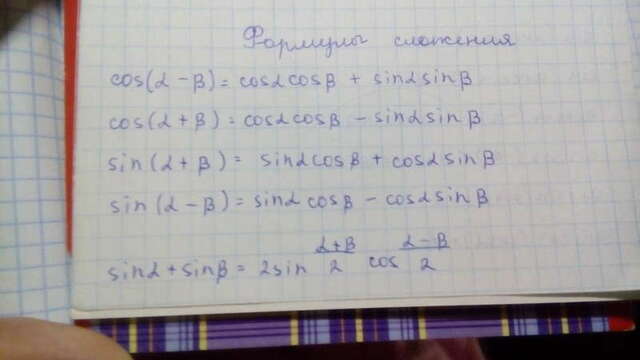 Формулы сложения
cos(α - β) = cosα cosβ + sinα sinβ
cos(α + β) = cosα cosβ - sinα sinβ
sin(α + β) = sinα cosβ + cosα sinβ
sin(α - β) = sinα cosβ - cosα sinβ
sinα + sinβ = 2sin (α+β)/2 cos (α-β)/2